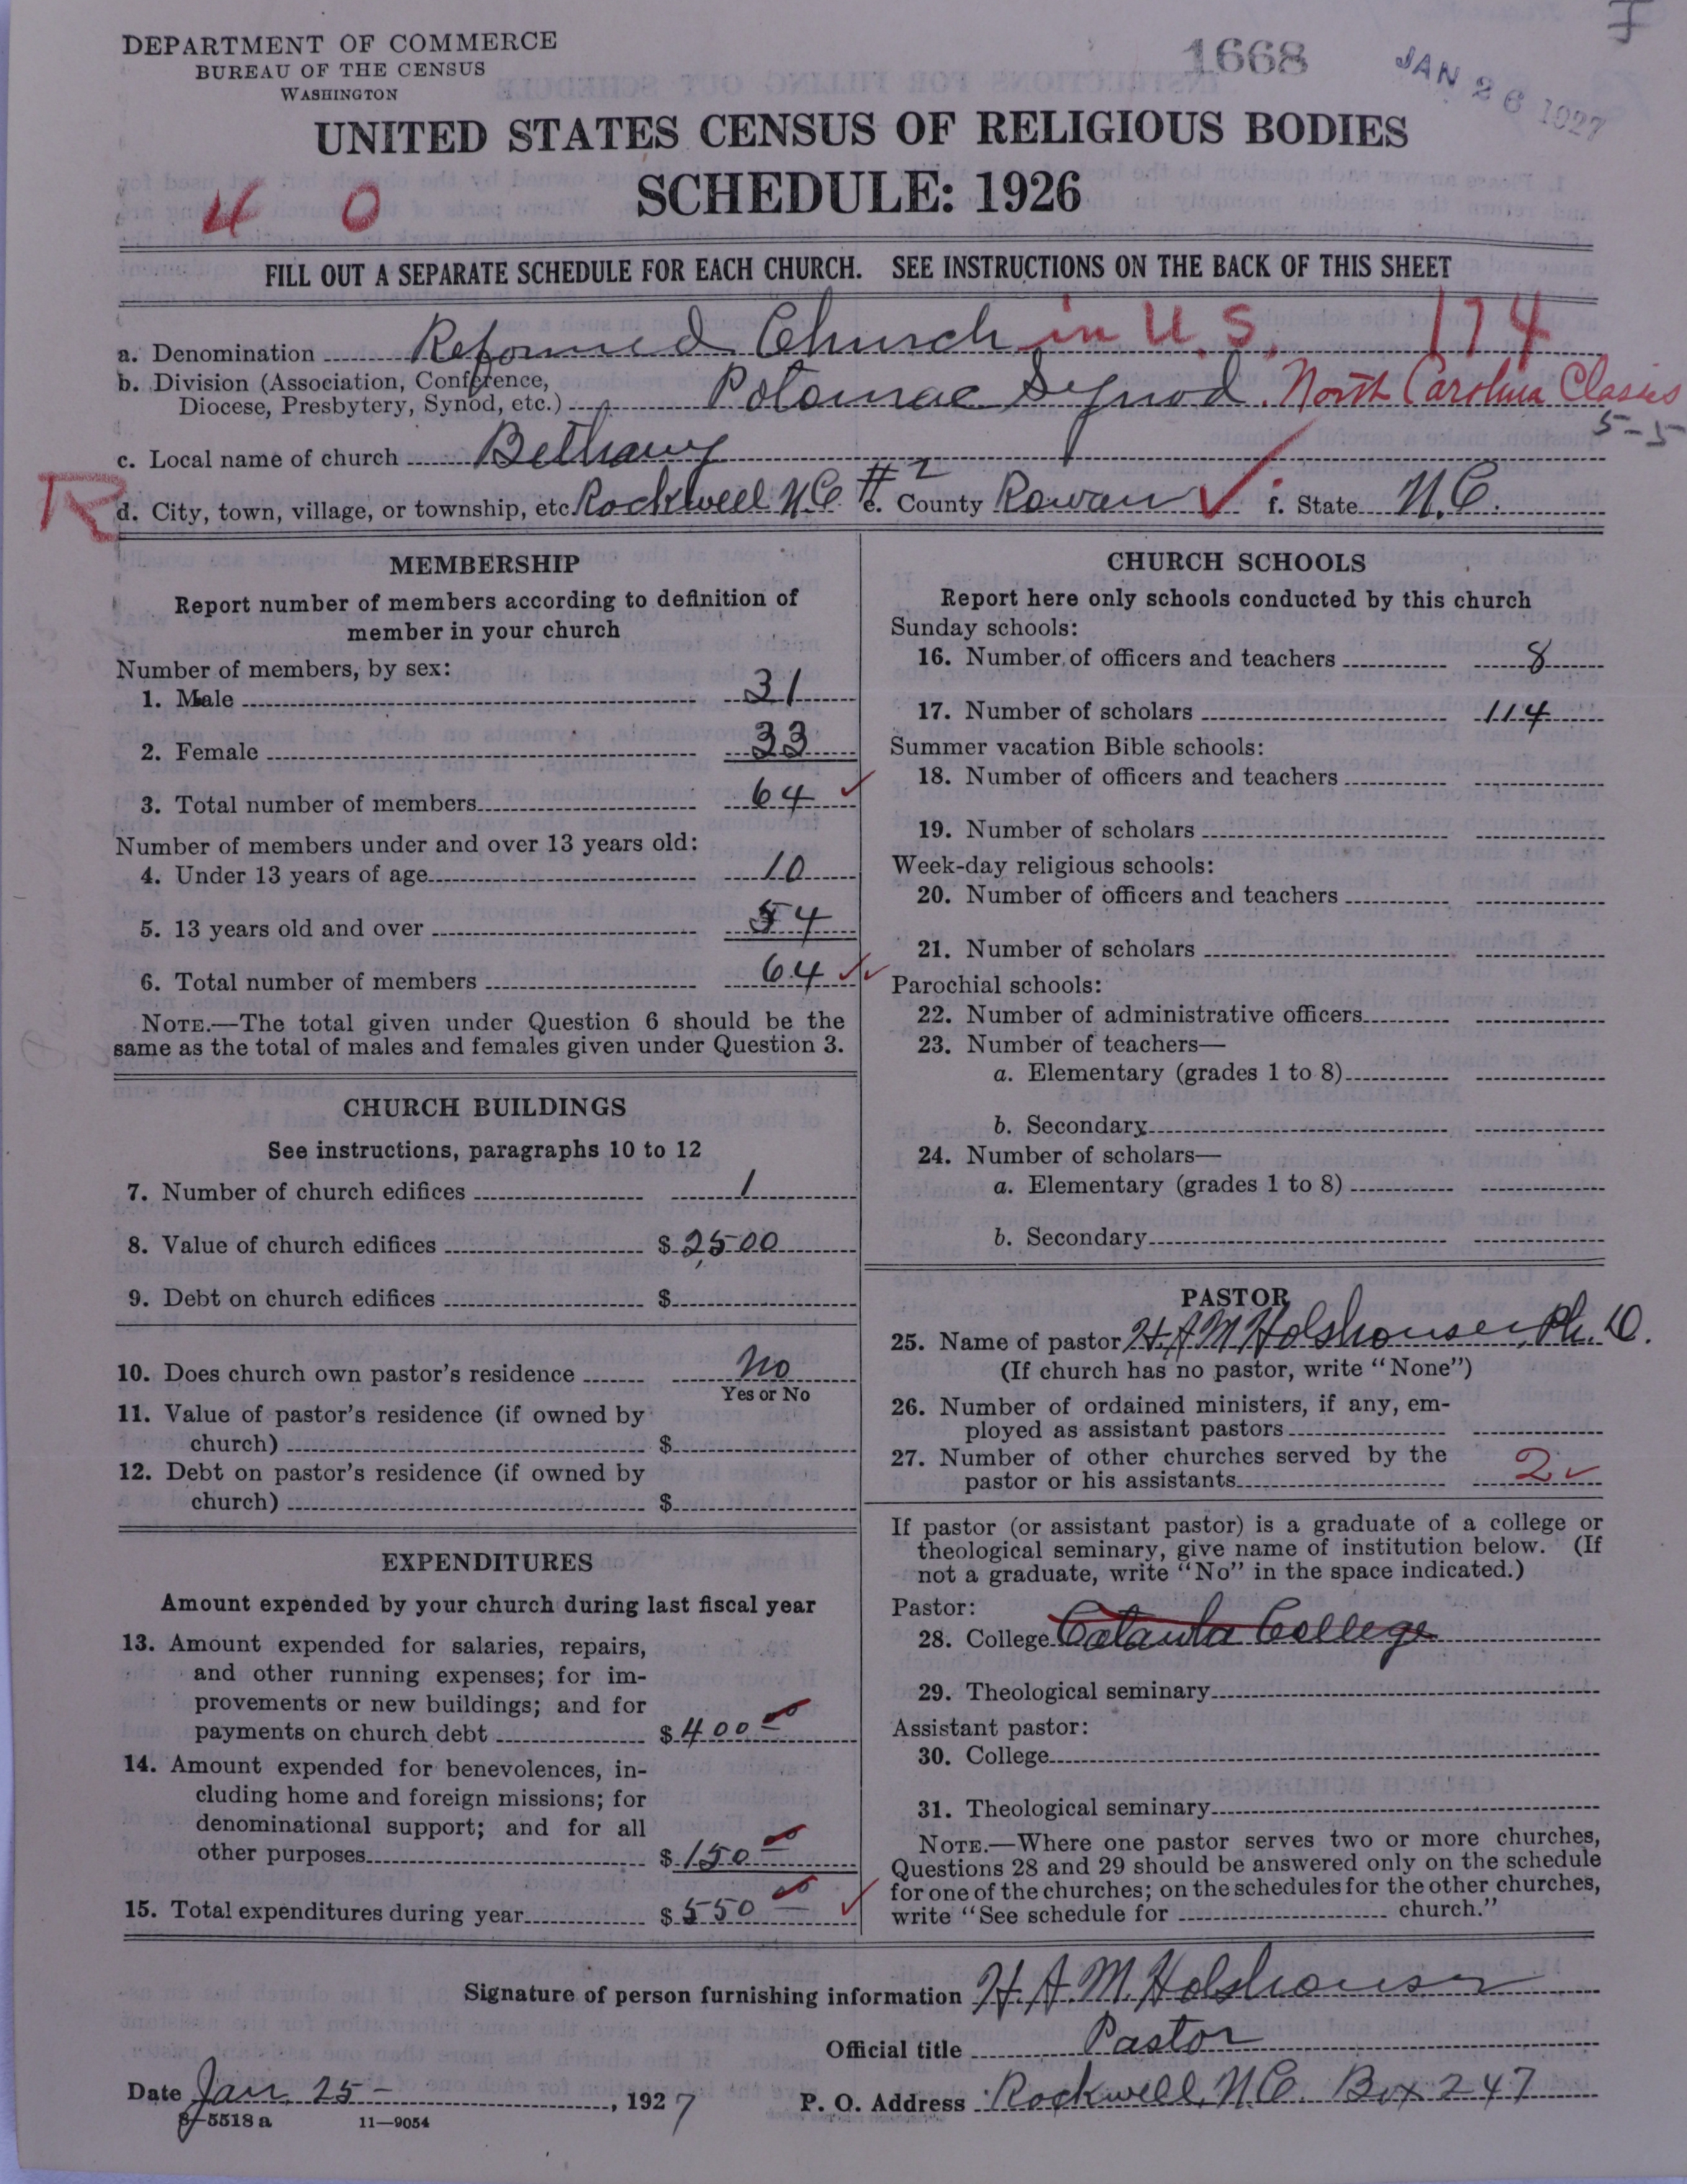 DEPARTMENT OF COMMERCE
BUREAU OF THE CENSUS
WASHINGTON
1668
JAN 26 1927
UNITED STATES CENSUS OF RELIGIOUS BODIES
SCHEDULE: 1926
4 0
FILL OUT A SEPARATE SCHEDULE FOR EACH CHURCH. SEE INSTRUCTIONS ON THE BACK OF THIS SHEET
a. Denomination Reformed Church in U.S. 174
b. Division (Association, Conference,
Diocese, Presbytery, Synod, etc.) Potomac Synod. North Carolina Classis
5-5
c. Local name of church Bethany
R
d. City, town, village, or township, etc. Rockwell N.C. #2 e. County Rowan f. State N.C.
MEMBERSHIP
Report number of members according to definition of
member in your church
Number of members, by sex:
1. Male 31
2. Female 33
3. Total number of members 64
Number of members under and over 13 years old:
4. Under 13 years of age 10
5. 13 years old and over 54
6. Total number of members 64
NOTE.—The total given under Question 6 should be the
same as the total of males and females given under Question 3.
CHURCH BUILDINGS
See instructions, paragraphs 10 to 12
7. Number of church edifices 1
8. Value of church edifices $ 2,500
9. Debt on church edifices $
10. Does church own pastor's residence No
Yes or No
11. Value of pastor's residence (if owned by
church) $
12. Debt on pastor's residence (if owned by
church) $
EXPENDITURES
Amount expended by your church during last fiscal year
13. Amount expended for salaries, repairs,
and other running expenses; for im-
provements or new buildings; and for
payments on church debt $ 400 00
14. Amount expended for benevolences, in-
cluding home and foreign missions; for
denominational support; and for all
other purposes $ 150 00
15. Total expenditures during year $ 550 00
CHURCH SCHOOLS
Report here only schools conducted by this church
Sunday schools:
16. Number of officers and teachers 8
17. Number of scholars 114
Summer vacation Bible schools:
18. Number of officers and teachers
19. Number of scholars
Week-day religious schools:
20. Number of officers and teachers
21. Number of scholars
Parochial schools:
22. Number of administrative officers
23. Number of teachers—
a. Elementary (grades 1 to 8)
b. Secondary
24. Number of scholars—
a. Elementary (grades 1 to 8)
b. Secondary
PASTOR
25. Name of pastor H A M Holshouser, Ph. D.
(If church has no pastor, write "None")
26. Number of ordained ministers, if any, em-
ployed as assistant pastors
27. Number of other churches served by the
pastor or his assistants 2
If pastor (or assistant pastor) is a graduate of a college or
theological seminary, give name of institution below. (If
not a graduate, write "No" in the space indicated.)
Pastor:
28. College Catawba College
29. Theological seminary
Assistant pastor:
30. College
31. Theological seminary
NOTE.—Where one pastor serves two or more churches,
Questions 28 and 29 should be answered only on the schedule
for one of the churches; on the schedules for the other churches,
write "See schedule for church."
Signature of person furnishing information H. A. M. Holshouser
Official title Pastor
Date Jan. 25 - , 1927 P. O. Address Rockwell, N.C. Box 247
8—5518 a 11—9054